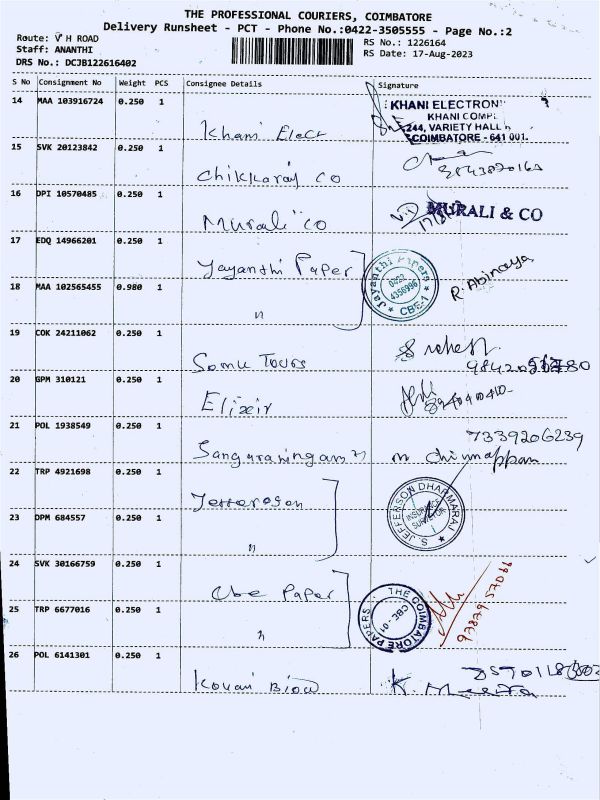 THE PROFESSIONAL COURIERS, COIMBATORE
Delivery Runsheet - PCT - Phone No.:0422-3505555 - Page No.:2
Route: V H ROAD
Staff: ANANTHI
DRS No.: DCJB122616402
RS No.: 1226164
RS Date: 17-Aug-2023
S No Consignment No Weight PCS Consignee Details Signature
14 MAA 103916724 0.250 1 Khani Elect
KHANI ELECTRON
KHANI COMPL
244, VARIETY HALL
COIMBATORE - 641 001.
15 SVK 20123842 0.250 1 Chikkaraj CO
16 DPI 10570485 0.250 1 Murali CO MURALI & CO
17 EDQ 14966201 0.250 1 Jayanthi Paper
Jayanthi Papers
0422
4356996
CBE-1
R. Abinaya
18 MAA 102565455 0.980 1 "
19 COK 24211062 0.250 1 Somu Tours
20 GPM 310121 0.250 1 Elixir
21 POL 1938549 0.250 1 7339206239
m chinnappan
22 TRP 4921698 0.250 1 Jefferson
S. JEFFERSON DHARMARAJ
INSURANCE
SURVEYOR
23 DPM 684557 0.250 1 "
24 SVK 30166759 0.250 1 Cbe Paper
THE COIMBATORE PAPERS
CBE - 01
25 TRP 6677016 0.250 1 "
26 POL 6141301 0.250 1 Kovai